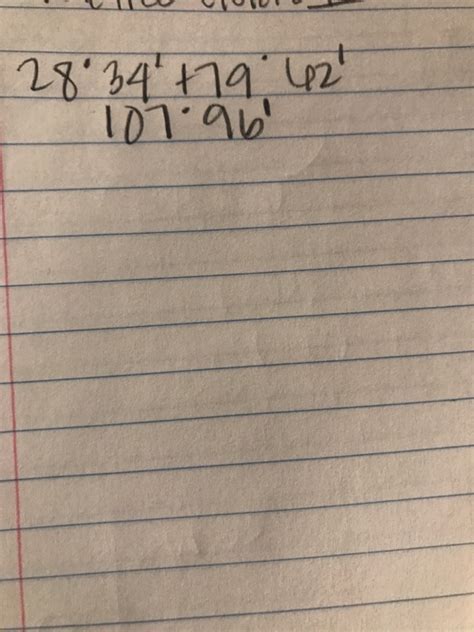 28° 34' + 79° 62'
107° 96'